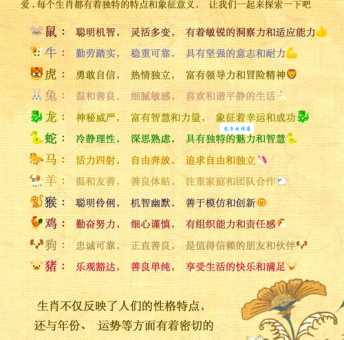 爱,每个生肖都有着独特的特点和象征意义, 让我们一起来探索一下吧
鼠: 聪明机智, 灵活多变, 有着敏锐的洞察力和适应能力
牛: 勤劳踏实, 稳重可靠, 具有坚强的意志和耐力
虎: 勇敢自信, 热情独立, 富有领导力和冒险精神
兔: 温和善良, 细腻敏感, 喜欢和谐平静的生活
龙: 神秘威严, 富有智慧和力量, 象征着幸运和成功
蛇: 冷静理性, 深思熟虑, 具有独特的魅力和智慧
马: 活力四射, 自由奔放, 追求自由和独立
羊: 温和友善, 善良体贴, 注重家庭和团队合作
猴: 聪明伶俐, 机智幽默, 善于模仿和创新
鸡: 勤奋努力, 细心谨慎, 有组织能力和责任感
狗: 忠诚可靠, 正直善良, 是值得信赖的朋友和伙伴
猪: 乐观豁达, 善良单纯, 享受生活的快乐和满足
生肖不仅反映了人们的性格特点,
还与年份、 运势等方面有着密切的